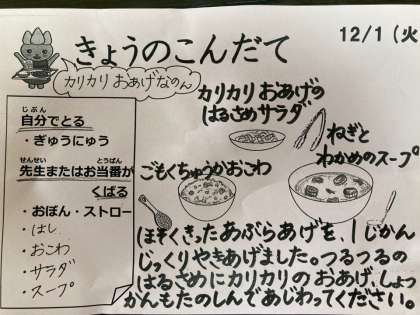 きょうのこんだて
12/1(火
カリカリ おあげなのん
自分でとる
じぶん
・ぎゅうにゅう
先生またはお当番が
せんせい とうばん
くばる
・おぼん・ストロー
・はし
・おこわ
・サラダ
・スープ
カリカリ おあげの
はるさめサラダ
ねぎと
わかめのスープ
ごもくちゅうかおこわ
ほそくきったあぶらあげを、1じかん
じっくりやきあげました。つるつるの
はるさめにカリカリのおあげ、しょっ
かんもたのしんであじわってください。